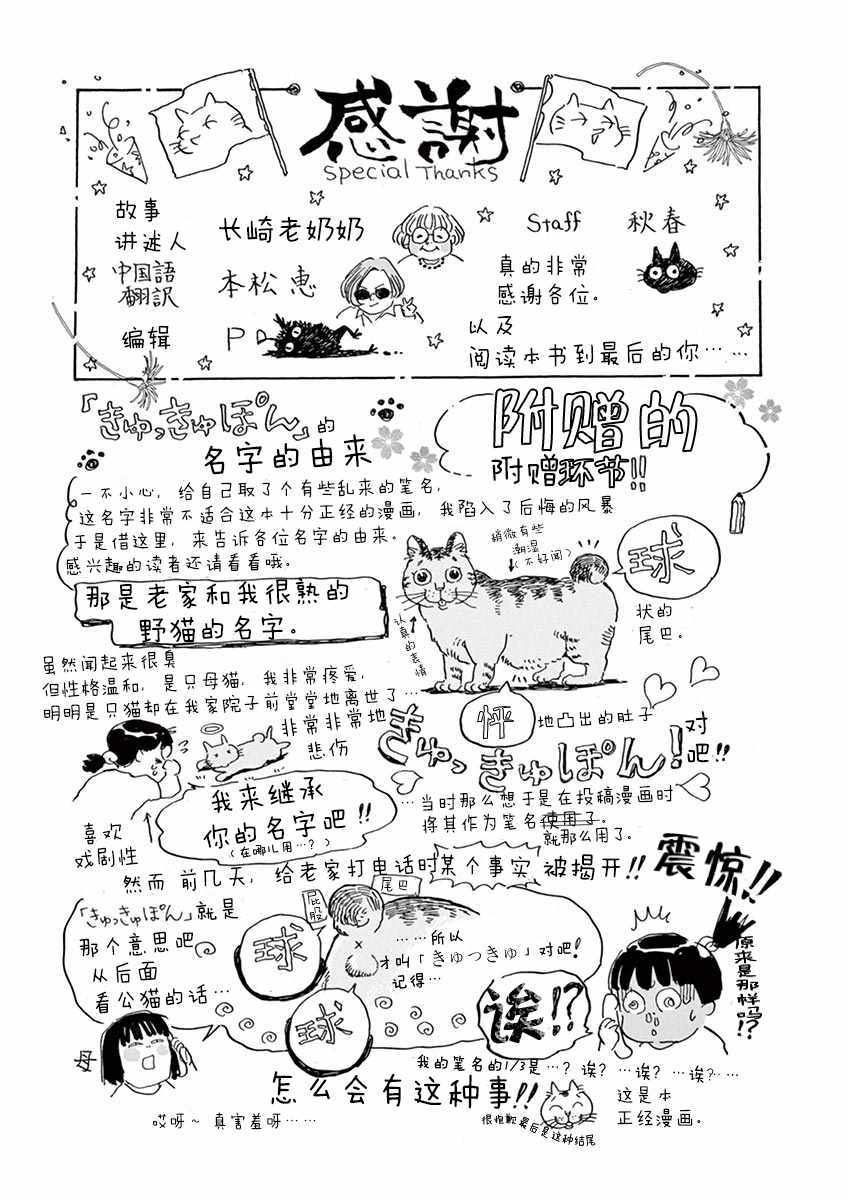 感謝
Special Thanks
故事
讲述人
长崎老奶奶
中国語
翻訳
本松恵
编辑
P
Staff
秋春
真的非常
感谢各位。
以及
阅读本书到最后的你……
「きゅっきゅぽん」的
名字的由来
附赠的
附赠环节!!
一不小心，给自己取了个有些乱来的笔名，
这名字非常不适合这本十分正经的漫画，我陷入了后悔的风暴
于是借这里，来告诉各位名字的由来。
感兴趣的读者还请看看哦。
那是老家和我很熟的
野猫的名字。
稍微有些
潮湿
（不好闻）
球
状的
尾巴。
认真的表情
虽然闻起来很臭
但性格温和，是只母猫，我非常疼爱，
明明是只猫却在我家院子前堂堂地离世了…
非常非常地
悲伤
怦
地凸出的肚子
きゅっきゅぽん!
对
吧!!
我来继承
你的名字吧!!
（在哪儿用…？）
喜欢
戏剧性
…当时那么想于是在投稿漫画时
将其作为笔名使用了。
就那么用了。
然而 前几天，给老家打电话时某个事实 被揭开!!
震惊!!
「きゅっきゅぽん」就是
那个意思吧
从后面
看公猫的话…
屁股
尾巴
球
球
……所以
才叫「きゅつきゅ」对吧!
记得…
诶!?
原来是那样吗!?
母
我的笔名的1/3是…？诶？…诶？…诶？…
怎么会有这种事!!
这是本
正经漫画。
哎呀~ 真害羞呀……
很抱歉最后是这种结尾